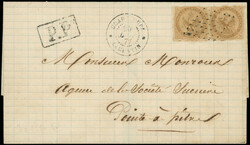 P.P.
Monsieur Monroux
Agence de la Société Sucrière
Pointe à pitre